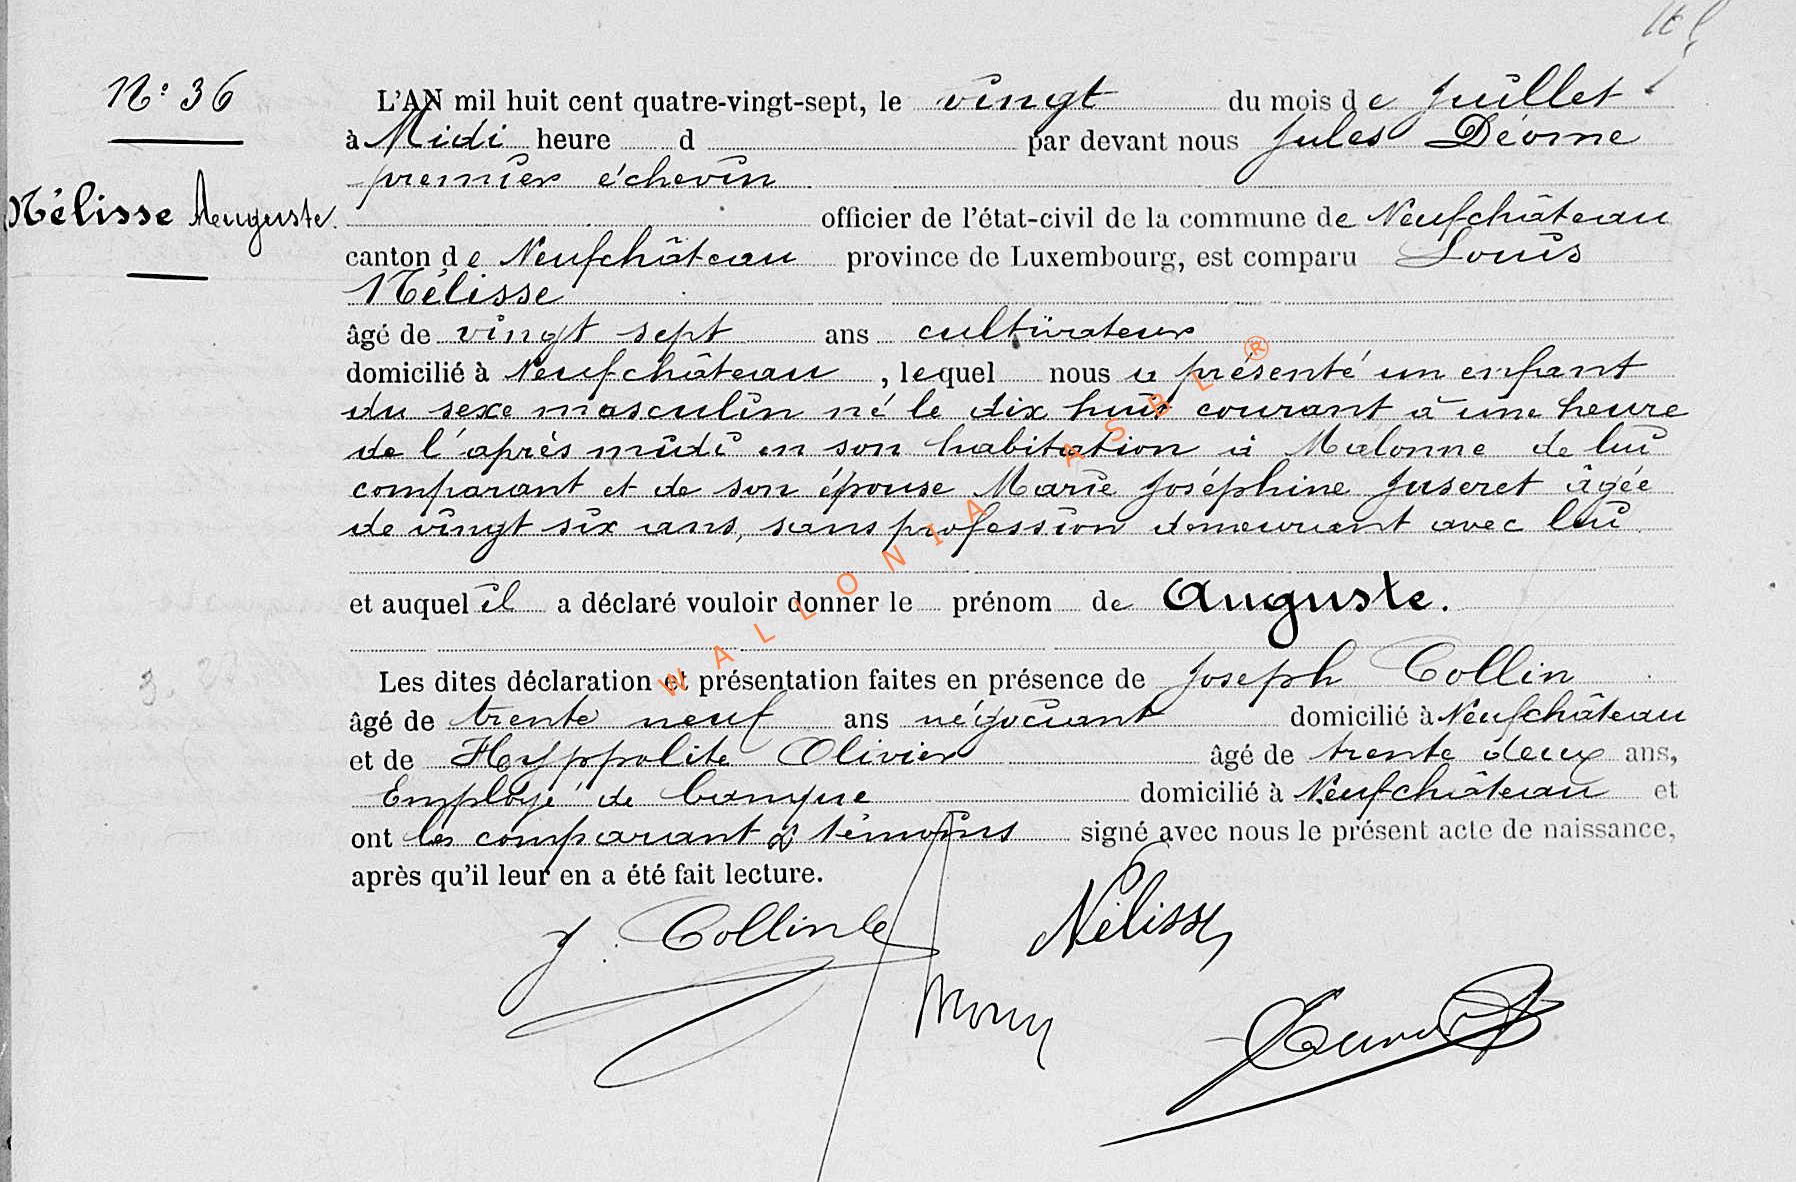 N° 36
Nélisse Auguste.
L'AN mil huit cent quatre-vingt-sept, le vingt du mois de Juillet
à Midi heure d par devant nous Jules Déome
premier échevin
officier de l'état-civil de la commune de Neufchâteau
canton de Neufchâteau province de Luxembourg, est comparu Louis
Nélisse
âgé de vingt sept ans cultivateur
domicilié à Neufchâteau, lequel nous a présenté un enfant
du sexe masculin né le dix huit courant à une heure
de l'après midi en son habitation à Malonne de lui
comparant et de son épouse Marie Joséphine Juseret âgée
de vingt six ans, sans profession demeurant avec lui
et auquel il a déclaré vouloir donner le prénom de Auguste.
Les dites déclaration et présentation faites en présence de Joseph Collin
âgé de trente neuf ans négociant domicilié à Neufchâteau
et de Hyppolite Olivier âgé de trente deux ans,
Employé de banque domicilié à Neufchâteau et
ont les comparant & témoins signé avec nous le présent acte de naissance,
après qu'il leur en a été fait lecture.
J. Collin
Nélisse
WALLONIA ASBL ®